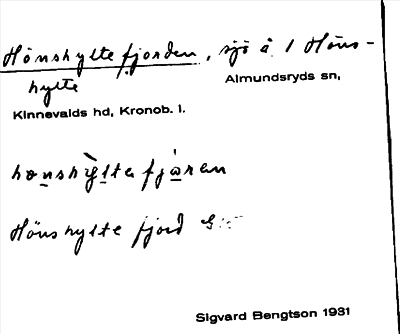 Hönshyltefjorden, sjö å 1 Höns-
hylte Almundsryds sn,
Kinnevalds hd, Kronob. l.
Hönshylte fjord
Sigvard Bengtson 1931